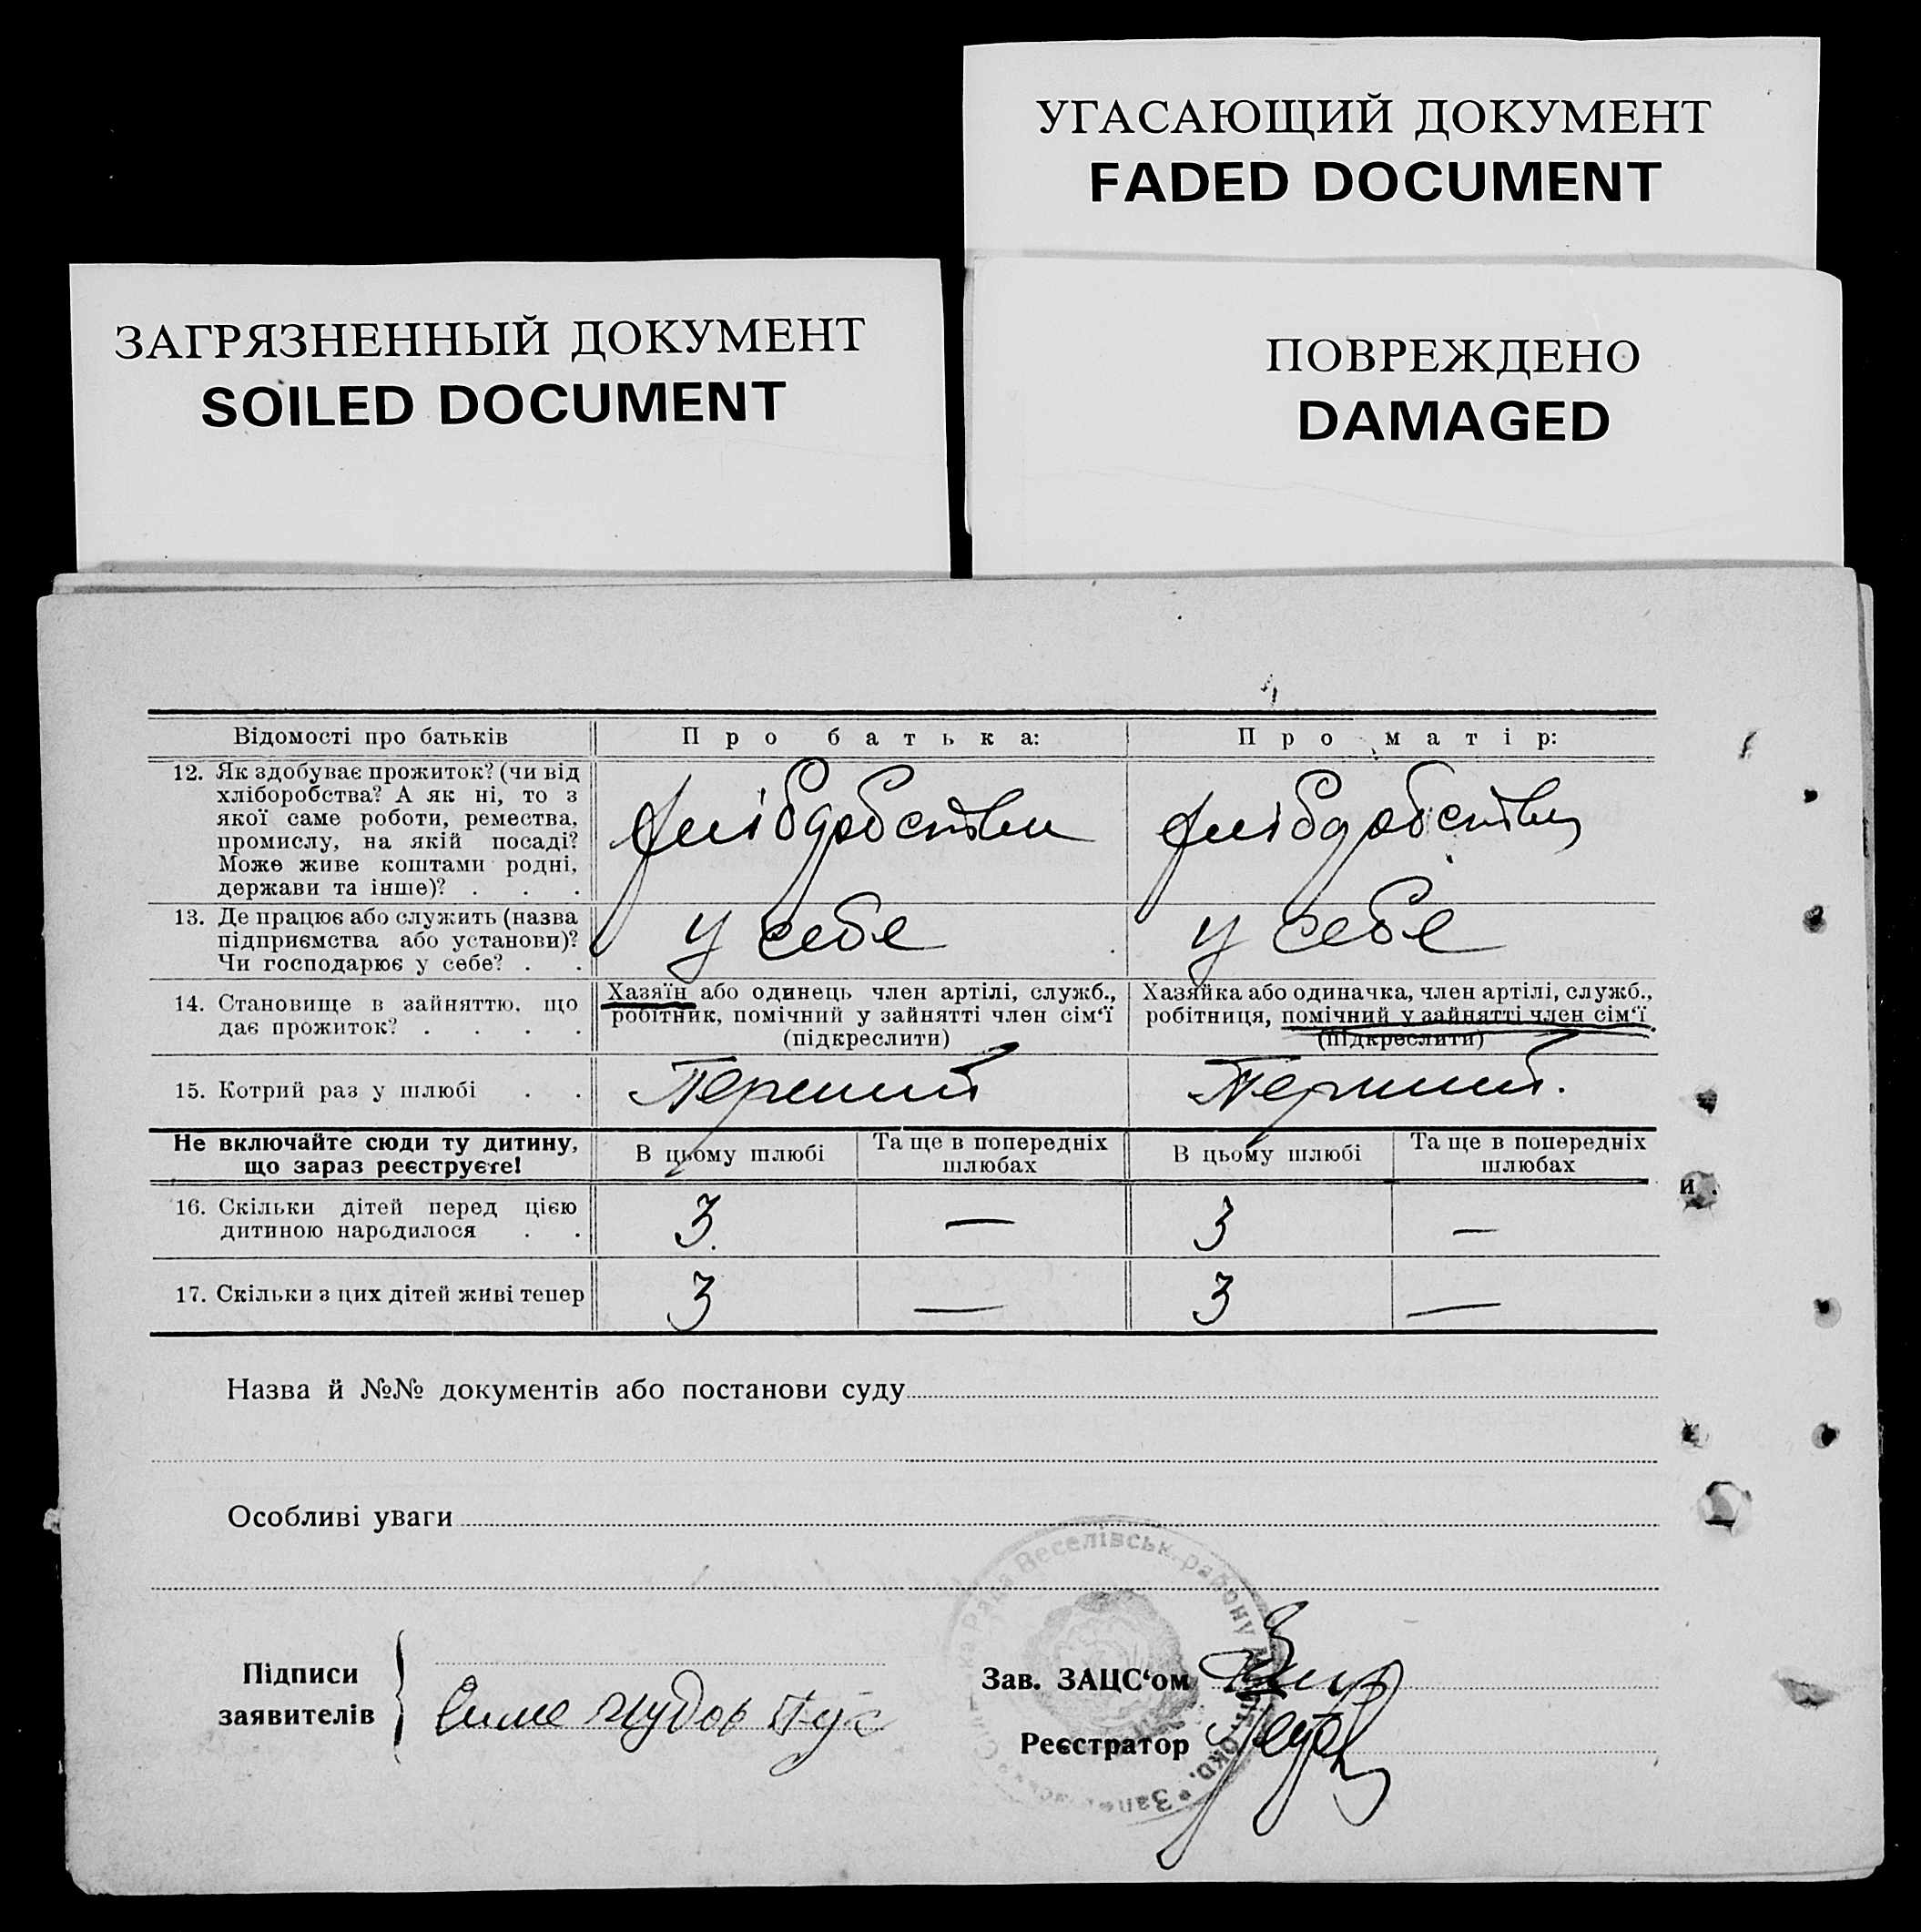 УГАСАЮЩИЙ ДОКУМЕНТ
FADED DOCUMENT
ЗАГРЯЗНЕННЫЙ ДОКУМЕНТ
SOILED DOCUMENT
ПОВРЕЖДЕНО
DAMAGED
Відомості про батьків
Про батька:
Про матір:
12. Як здобуває прожиток? (чи від
хліборобства? А як ні, то з
якої саме роботи, ремества,
промислу, на якій посаді?
Може живе коштами родні,
держави та інше)? . . .
13. Де працює або служить (назва
підприємства або установи)?
Чи господарює у себе? . .
у себе
у себе
14. Становище в зайняттю, що
дає прожиток? . . . .
Хазяїн або одинець член артілі, служб.,
робітник, помічний у зайнятті член сім‘ї
(підкреслити)
Хазяйка або одиначка, член артілі, служб.,
робітниця, помічний у зайнятті член сім‘ї
(підкреслити)
15. Котрий раз у шлюбі . .
Перший
Перший.
Не включайте сюди ту дитину,
що зараз реєструєте!
В цьому шлюбі
Та ще в попередніх
шлюбах
В цьому шлюбі
Та ще в попередніх
шлюбах
16. Скільки дітей перед цією
дитиною народилося . .
3.
—
3
—
17. Скільки з цих дітей живі тепер
3
—
3
—
и .
Назва й №№ документів або постанови суду
Особливі уваги
Рада Веселівськ. району
окр. • Запо
Підписи
заявителів
Зав. ЗАЦС‘ом
Реєстратор